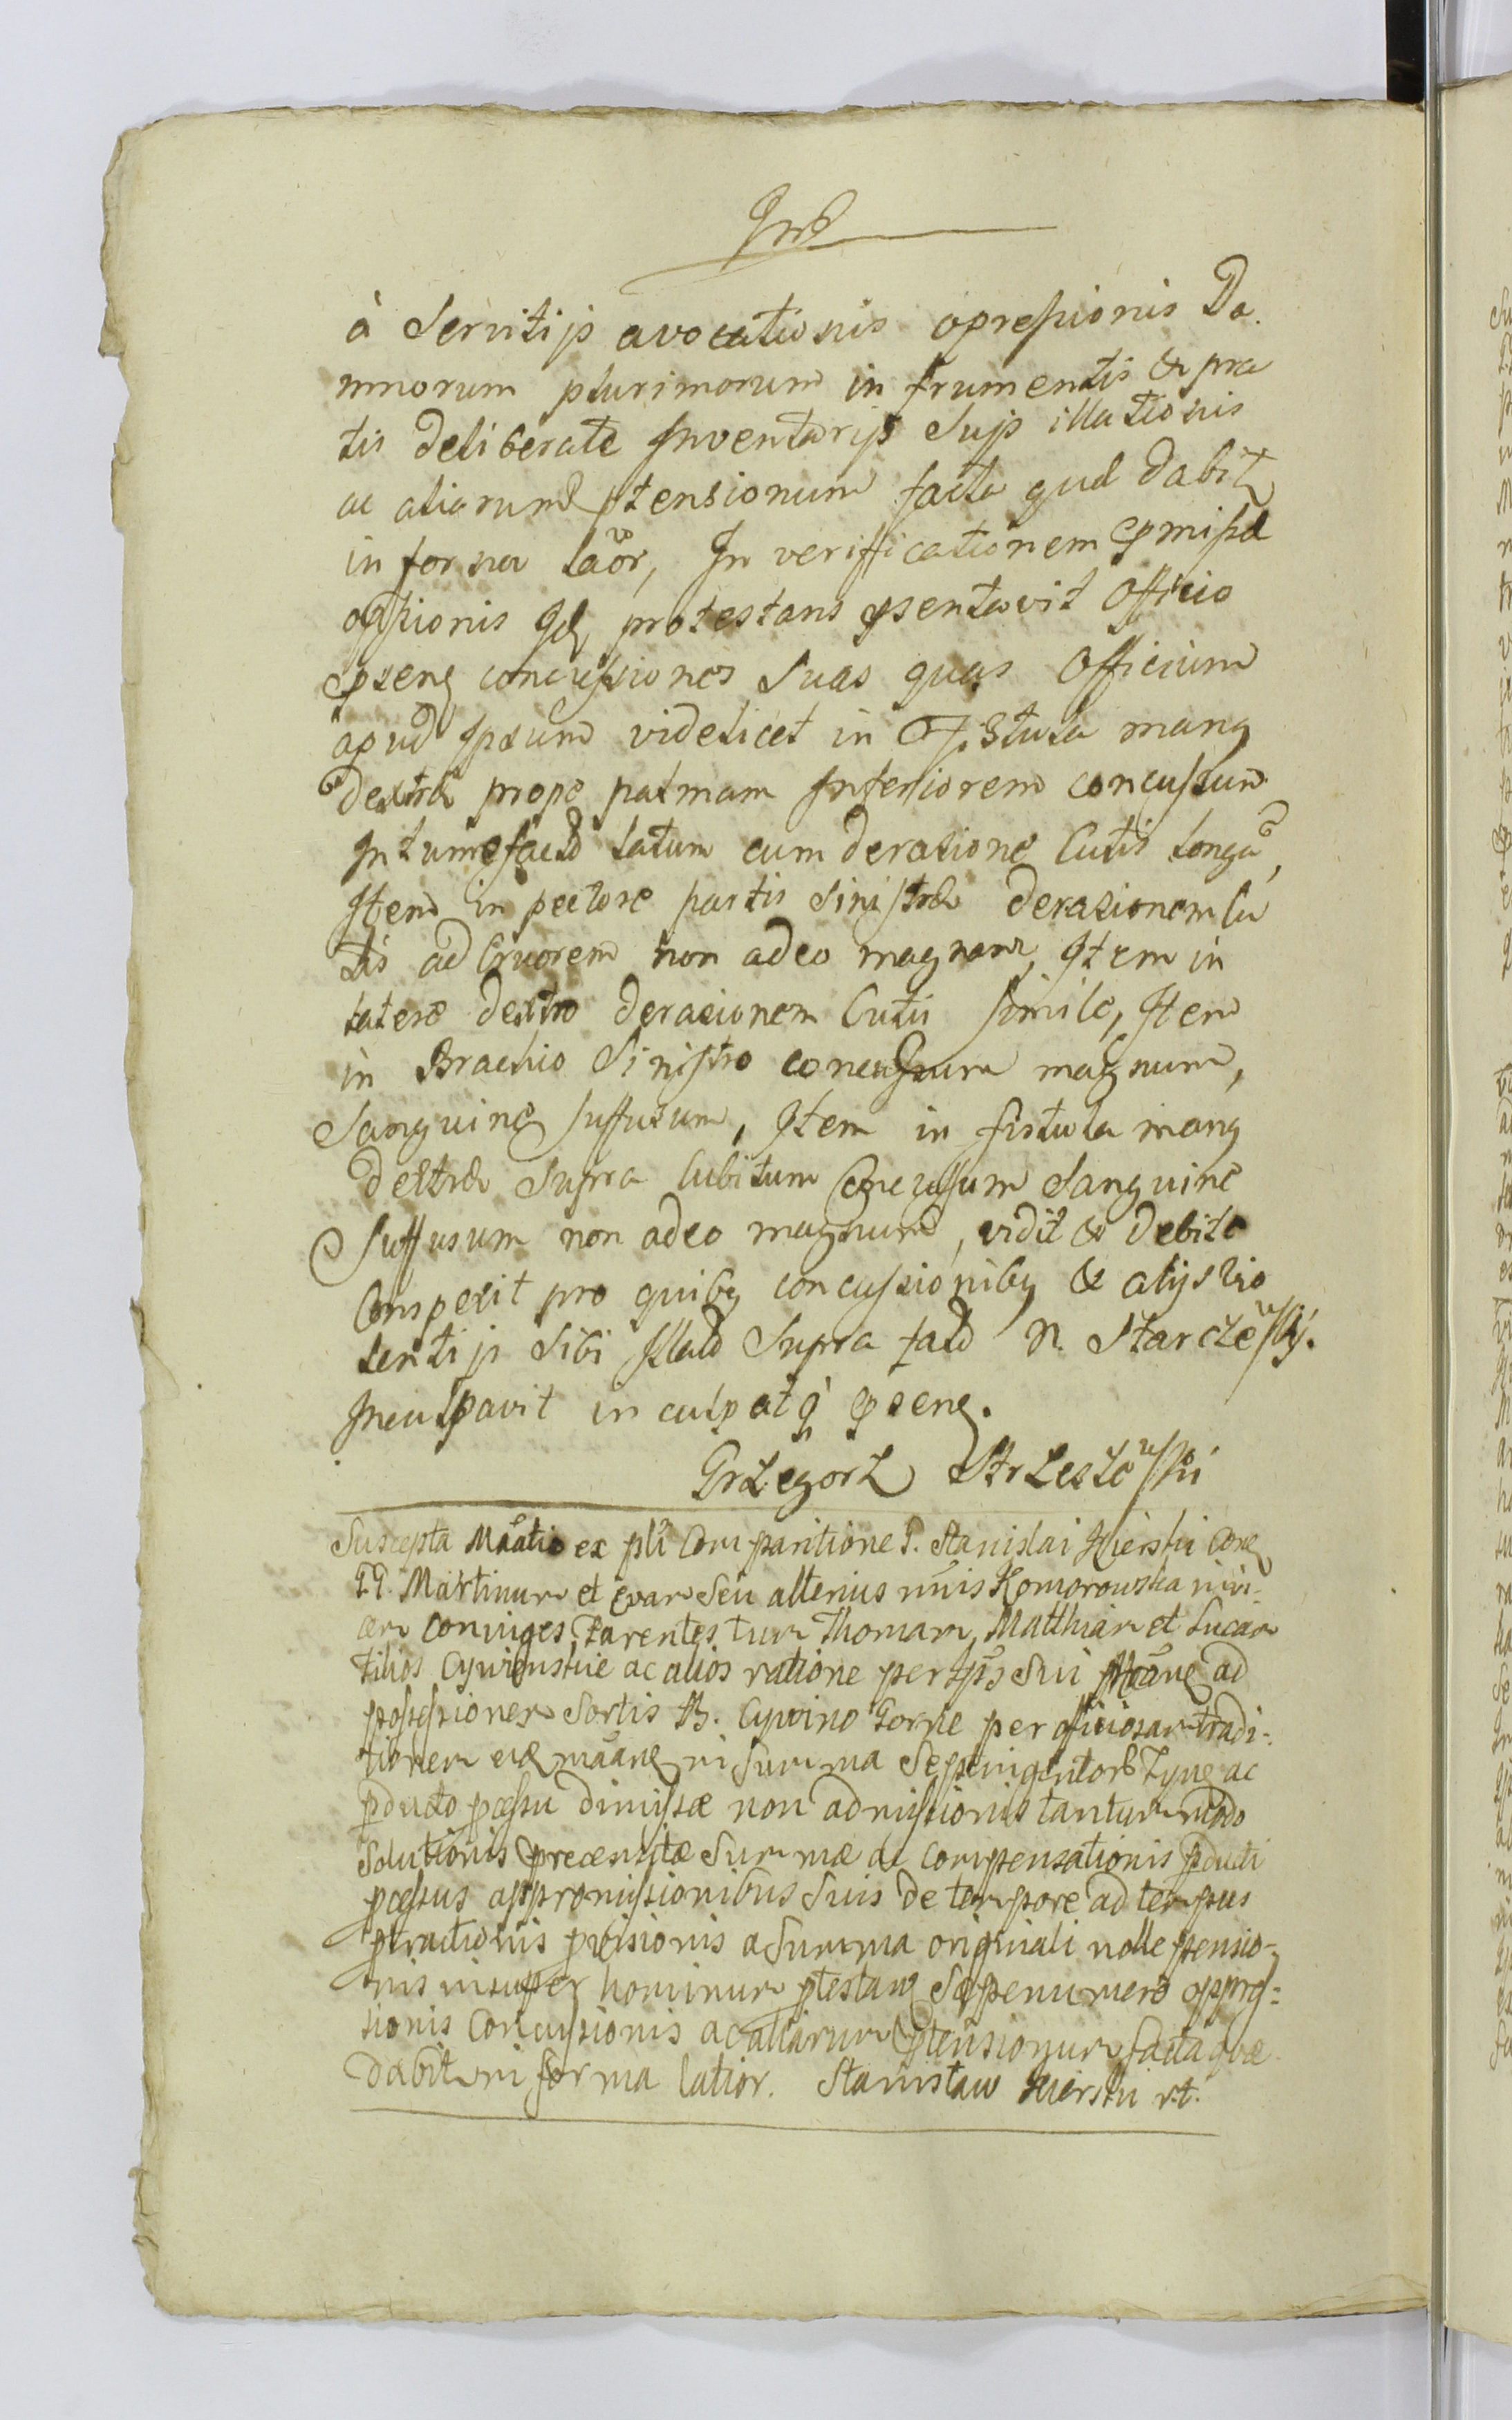 à Servitijs avocationis opressionis Da.
mnorum plurimorum in frumentis & pra
tis deliberate Inventarijs Sujs illationis
ac aliarum ptensionum facta qud dabit
in forma laõr, In verifficationem pmissæ
oppsionis Id, protestans psentavit Officio
pseng concussiones Suas quas Officium
apud Ipsum videlicet in Fistula mang
dextræ prope palmam Inferiorem concussum
Intumefactũ latum cum derasione Cutis longã,
Item in pectore partis Sinistræ derasionem Cu
tis ad Cruorem non adeo magnam, Item in
latere dextro derasionem Cutis simile, Item
in Brachio Sinistro concussum magnum,
Sanguine suffusum, Item in fistula mang
dextræ Supra Cubitum Concussum Sanguine
Suffusum non adeo magnum, vidit & debite
Conspexit pro quibg concussionibg & alijs Vio
lentijs Sibi Illatis Supra fatũ N. Starczewskj.
Inculpavit inculpatq pseng.
Grzegorz Strzeszewski
Suscepta Mãatio ex pli Comparitione G. Stanislai Kierski Cone
GG. Martinum et Evam Seu alterius nũis Komorowska nun-
cem coniuges Parentes tum Thomam, Matthiam et Lucam
Filios Cywinskie ac alios ratione per Ipõs Sui Mãne ad
possessionem Sortis B. Cywino Gorne per officiosam tradi-
tionem eiæ mãane in Summa Septingentorũ Tyne ac
pducto pcessu dimissæ non admissionis tantum modo
Solutionis præensitæ Summæ ac compensationis pducti
pcessus appromissionibus Suis de tempore ad tempus
ptractionis pvisionis a Summa originali nolle pensio-
nis insuper hominum ptestang Sæpenumero oppres-
sionis Concussionis ac aliarum ptensionum facta quæ
dabit in forma latior. Stanisław Kierski r.t.